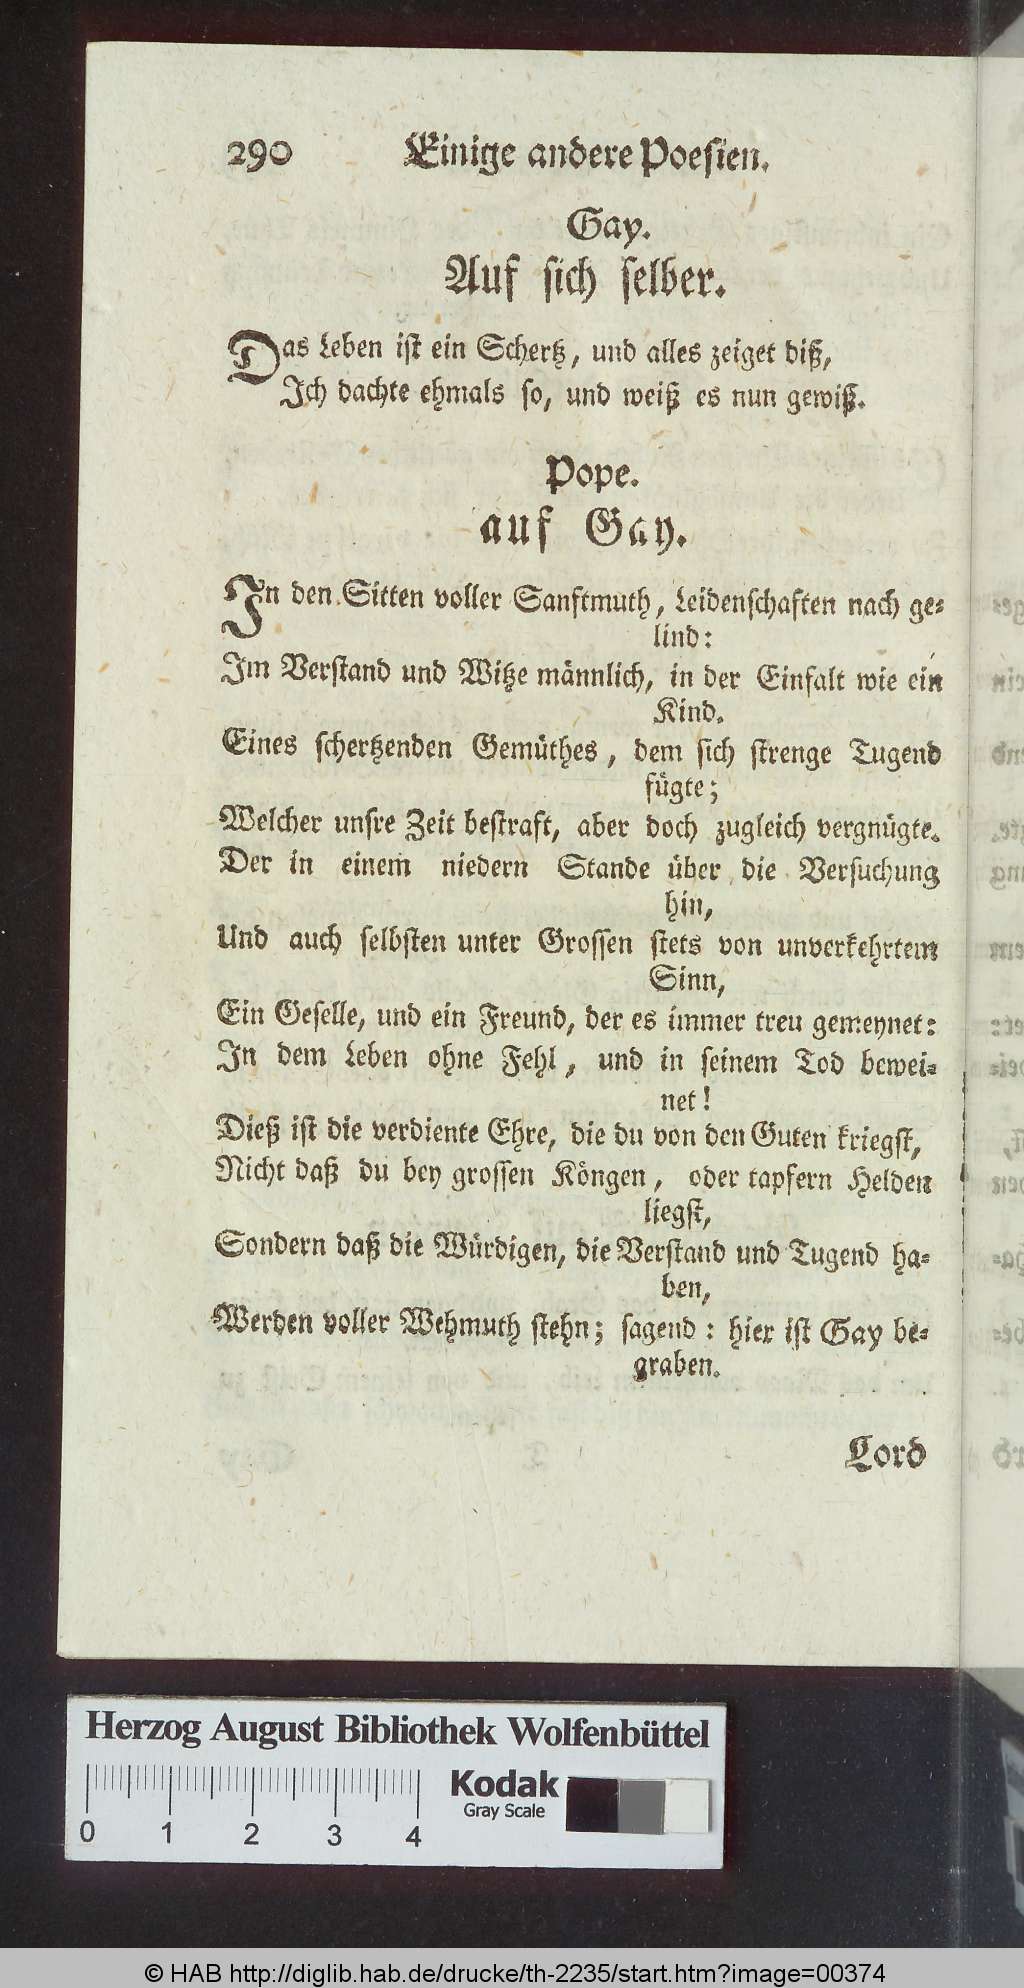 290 Einige andere Poesien.
Gay.
Auf sich selber.
Das Leben ist ein Schertz, und alles zeiget diß,
Ich dachte ehmals so, und weiß es nun gewiß.
Pope.
auf Gay.
In den Sitten voller Sanftmuth, Leidenschaften nach ge-
lind:
Im Verstand und Witze männlich, in der Einfalt wie ein
Kind.
Eines schertzenden Gemüthes, dem sich strenge Tugend
fügte;
Welcher unsre Zeit bestraft, aber doch zugleich vergnügte.
Der in einem niedern Stande über die Versuchung
hin,
Und auch selbsten unter Grossen stets von unverkehrtem
Sinn,
Ein Geselle, und ein Freund, der es immer treu gemeynet:
In dem Leben ohne Fehl, und in seinem Tod bewei-
net!
Dieß ist die verdiente Ehre, die du von den Guten kriegst,
Nicht daß du bey grossen Köngen, oder tapfern Helden
liegst,
Sondern daß die Würdigen, die Verstand und Tugend ha-
ben,
Werden voller Wehmuth stehn; sagend: hier ist Gay be-
graben.
Lord
Herzog August Bibliothek Wolfenbüttel
Kodak
Gray Scale
0 1 2 3 4
© HAB http://diglib.hab.de/drucke/th-2235/start.htm?image=00374